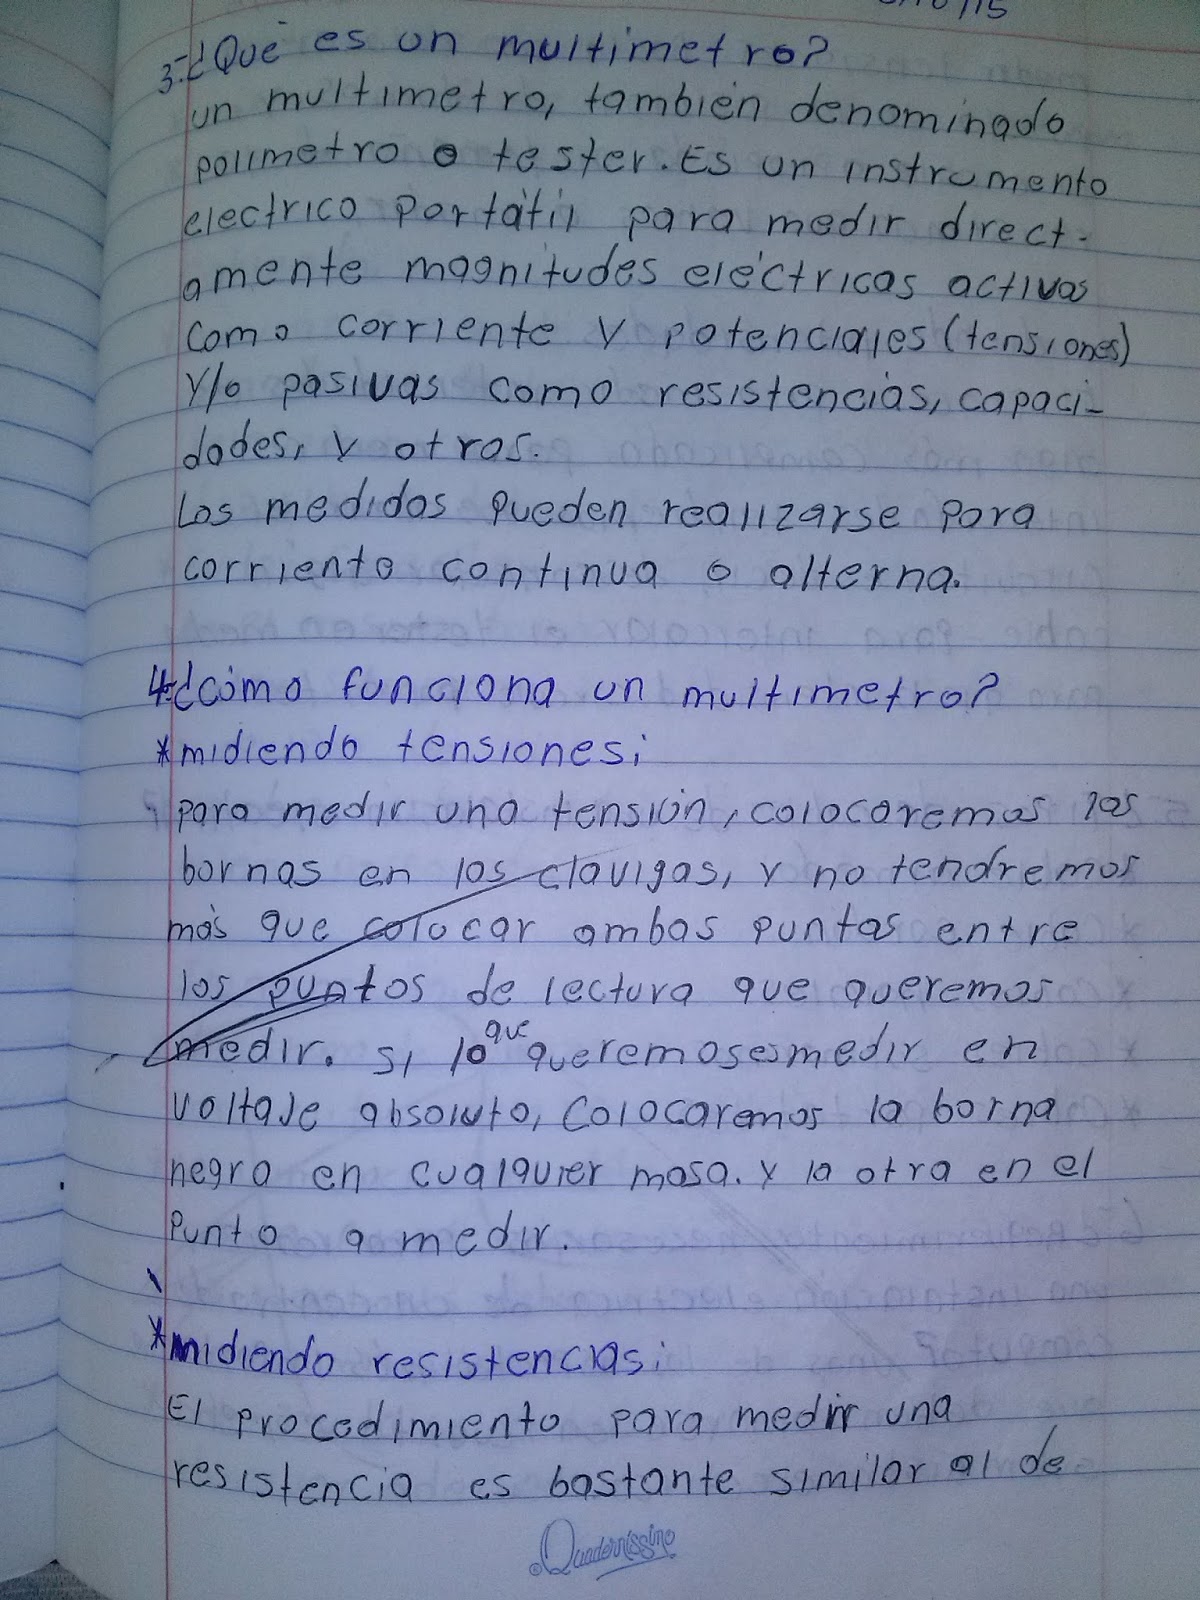 3-¿Qué es un multimetro?
un multimetro, también denominado
polimetro o tester. Es un instrumento
electrico portátil para medir direct-
amente magnitudes eléctricas activas
como corriente y potenciales (tensiones)
y/o pasivas como resistencias, capaci-
dades, y otros.
Las medidas pueden realizarse para
corriento continua o alterna.
4-¿cómo funciona un multimetro?
*midiendo tensiones:
para medir una tensión, colocaremos las
bornas en las clavigas, y no tendremos
más que colocar ambas puntas entre
los puntos de lectura que queremos
medir. si lo que queremos es medir en
voltaje absoluto, colocaremos la borna
negra en cualquier masa. y la otra en el
punto a medir.
*midiendo resistencias:
El procedimiento para medir una
resistencia es bastante similar al de
Quadernissimo